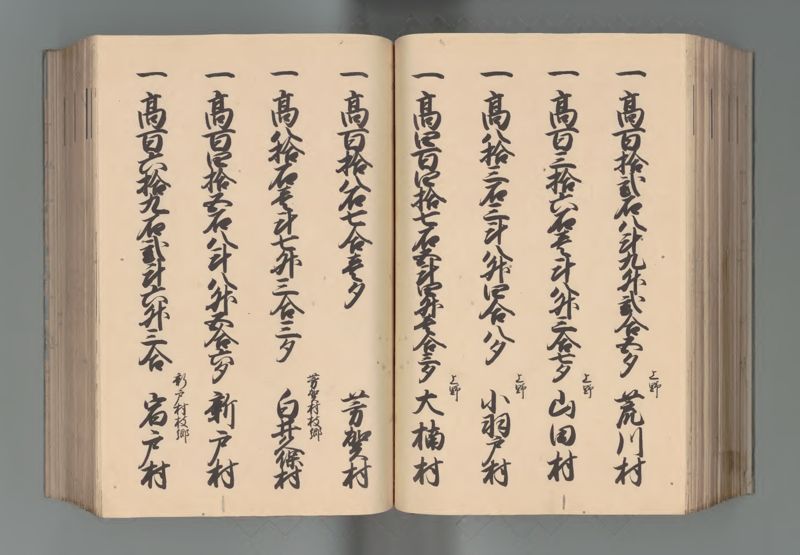 一高百拾弐石八斗九升弐合五夕 上野 荒川村
一高百三拾六石壱斗八升三合七夕 上野 山田村
一高八拾三石三斗八升四合八夕 上野 小羽戸村
一高四百四拾七石五斗四升壱合三夕 上野 大楠村
一高百拾八石七合壱夕 芳賀村
一高八拾石壱斗七升三合三夕 芳賀村枝郷 白井久保村
一高百四拾五石八斗八升五合六夕 新戸村
一高百六拾九石弐斗六升三合 新戸村枝郷 宿戸村